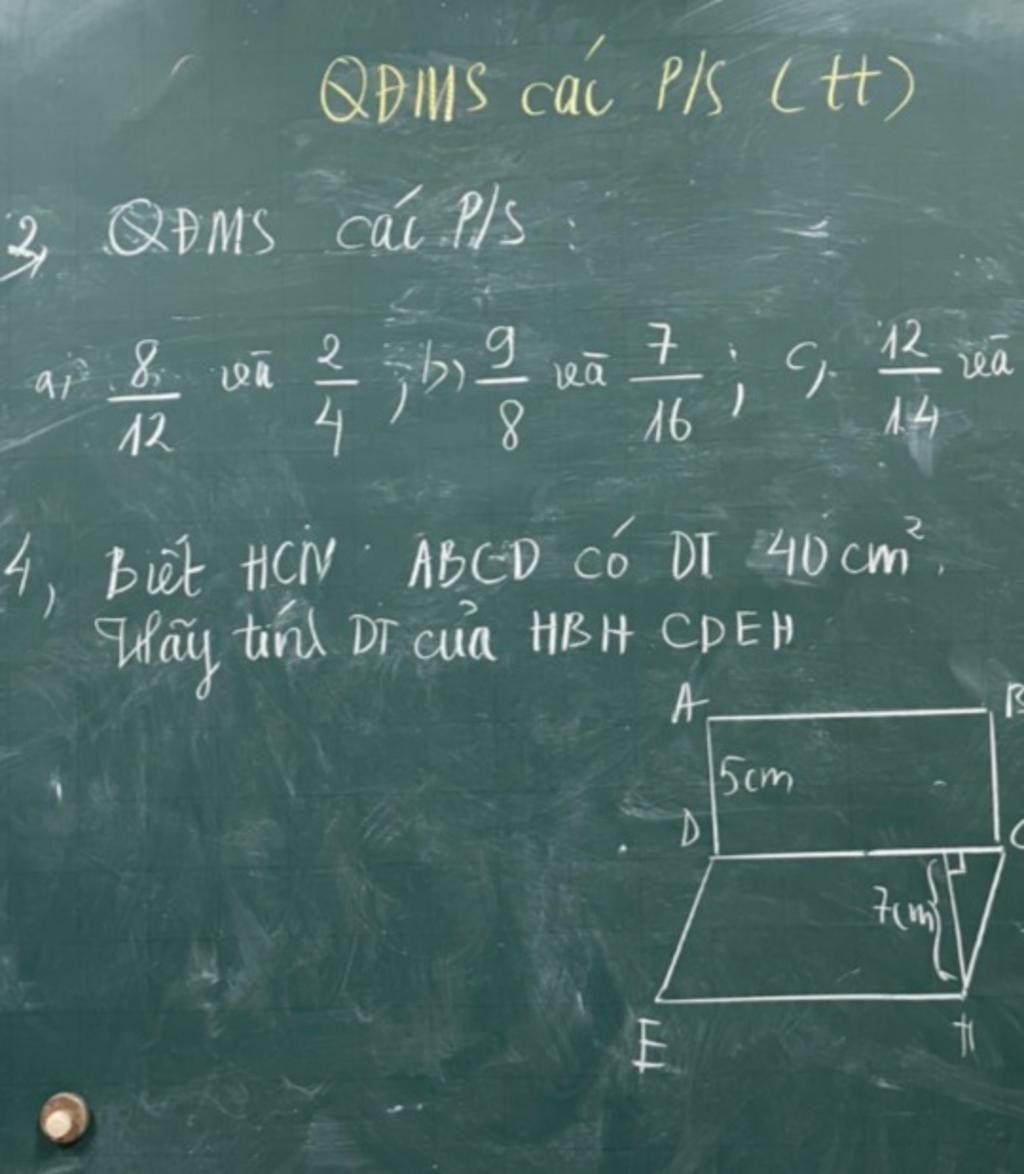 QĐMS các P/S (tt)
2, QĐMS các P/S :
a, 8/12 và 2/4 ; b) 9/8 và 7/16 ; c, 12/14 và
4, Biết HCN ABCD có DT 40 cm².
Hãy tính DT của HBH CDEH
A B
5cm
D C
7cm
E H